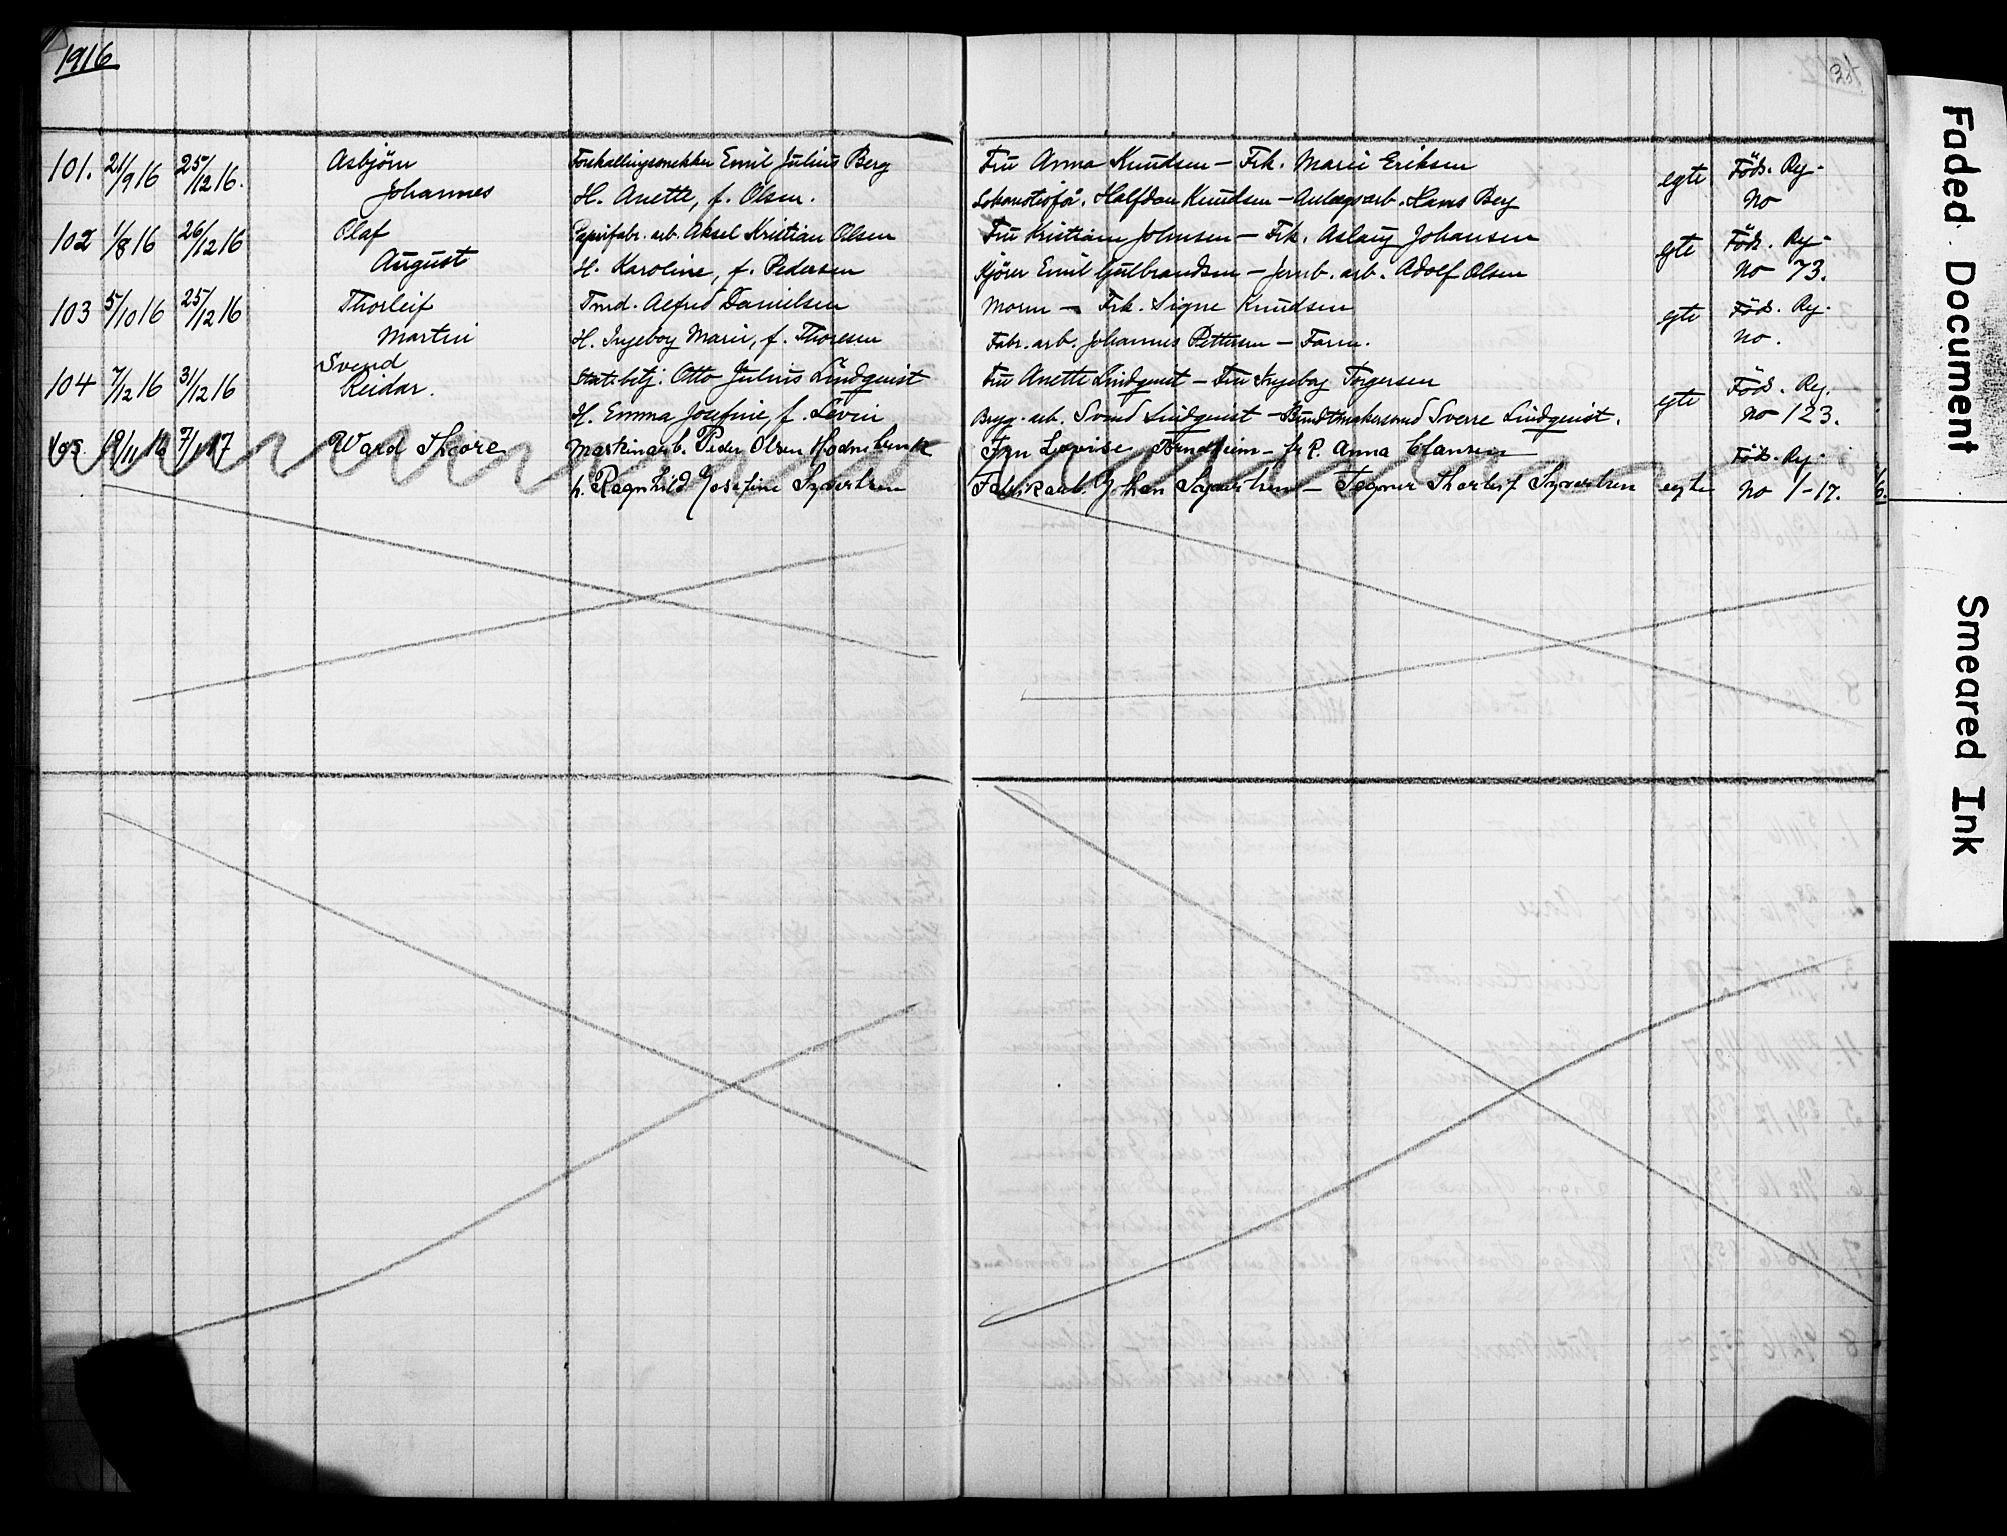 1916
101. 21/9 16 25/12 16. Asbjörn Emil Julius Berg Fru Anna Knudsen - Frk. Marie Eriksen egte Föds. Reg.
Johannes H. Anette, f. Olsen. Halfdan Knudsen - Anlægsarb. Hans Berg No
102 1/8 16 26/12 16 Olaf Papirfabr. arb. Aksel Kristian Olsen Fru Kristiane Johnsen - Frk. Aslaug Johansen egte Föds. Reg.
August H. Karoline, f. Pedersen Kjörer Emil Gulbrandsen - Jernb. arb. Adolf Olsen No 73.
103 5/10 16 25/12 16 Thorleif Tmd. Alfred Danielsen Morm - Frk. Signe Knudsen egte Föds. Reg.
Martin H. Ingeborg Marie, f. Thoresen Fabr. arb. Johannes Pettersen - Farm. No.
Svend
104 7/12 16 31/12 16 Reidar. Statsbetj. Otto Julius Lindquist Fru Anette Lindquist - Fru Ingeborg Torgersen egte Föds. Reg.
H. Emma Josefine, f. Levin Bryg. arb. Svend Lindquist - Buntmakersvend Sverre Lindquist. No 123.
105 19/11 16 7/1 17 Ward Thore Maskinarb. Peder Olsen Fru Lovise - frk. Anna Clausen Föds. Reg.
h. Ragnhild Josefine Syvertsen Fabrikarb. Johan Syvertsen - Thorleif Syvertsen egte No 1-17.
Faded Document
Smeared Ink